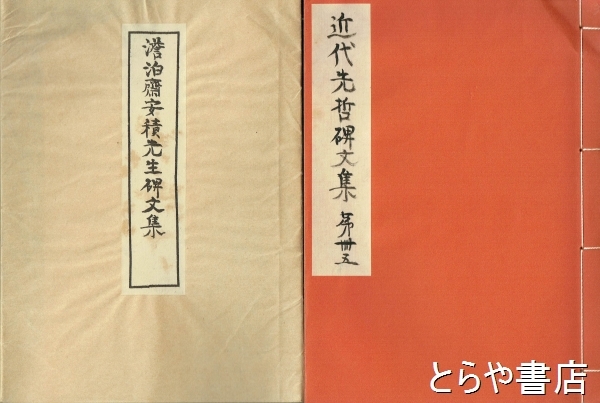 近代先哲碑文集 第卌五
澹泊齋安積先生碑文集
とらや書店